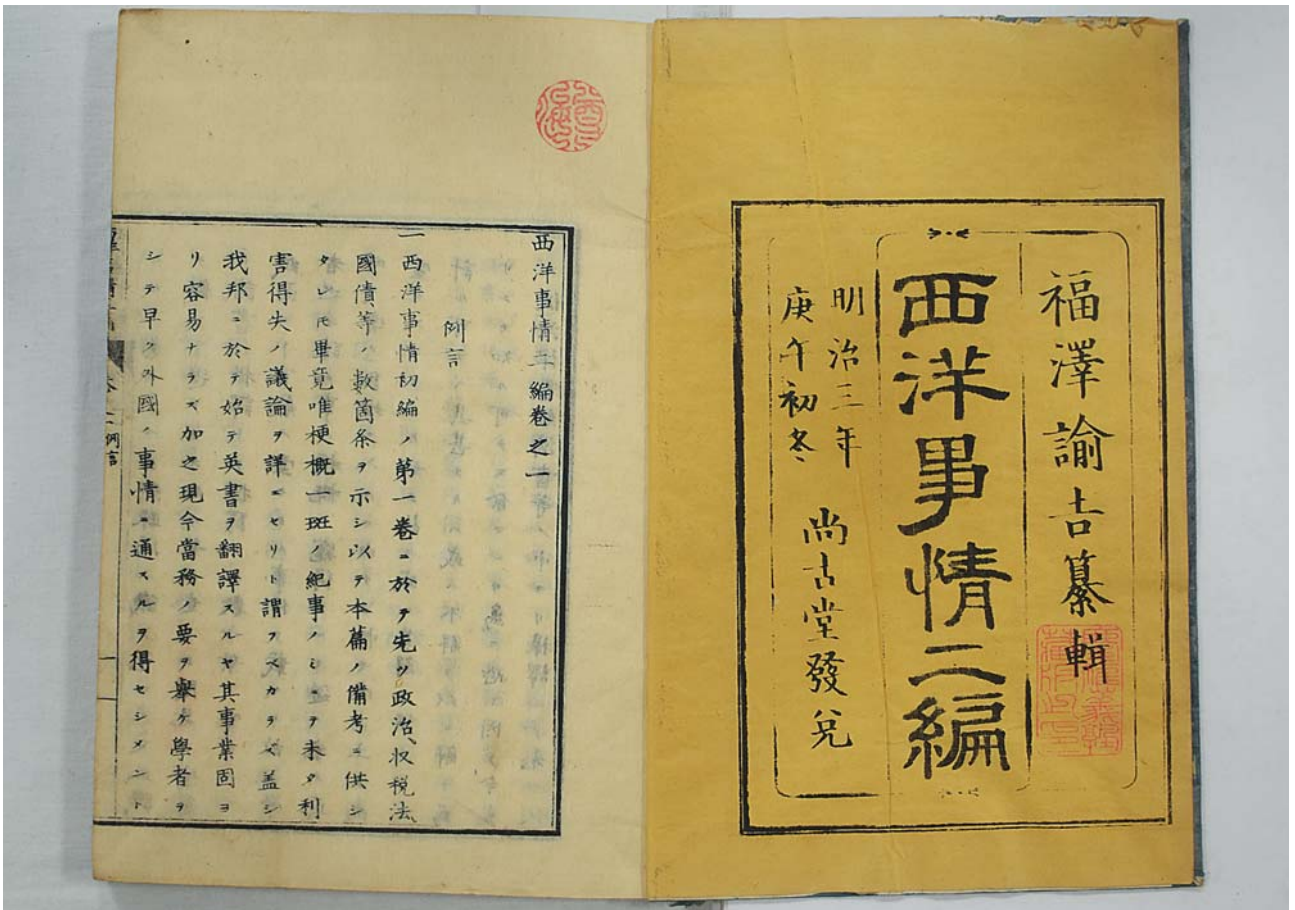 福澤諭吉纂輯
西洋事情二編
明治三年
庚午初冬
尚古堂發兌
西洋事情二編卷之一
例言
一西洋事情初編ノ第一卷ニ於テ先ツ政治、収税法、
國債等ノ數箇条ヲ示シ以テ本篇ノ備考ニ供シ
タレㇳモ畢竟唯梗概一斑ノ紀事ノミニテ未タ利
害得失ノ議論ヲ詳ニセリト謂フヘカラス盖シ
我邦ニ於テ始テ英書ヲ翻譯スルヤ其事業固ヨ
リ容易ナラス加之現今當務ノ要ヲ擧ケ學者ヲ
シテ早ク外國ノ事情ニ通スルヲ得セシメント